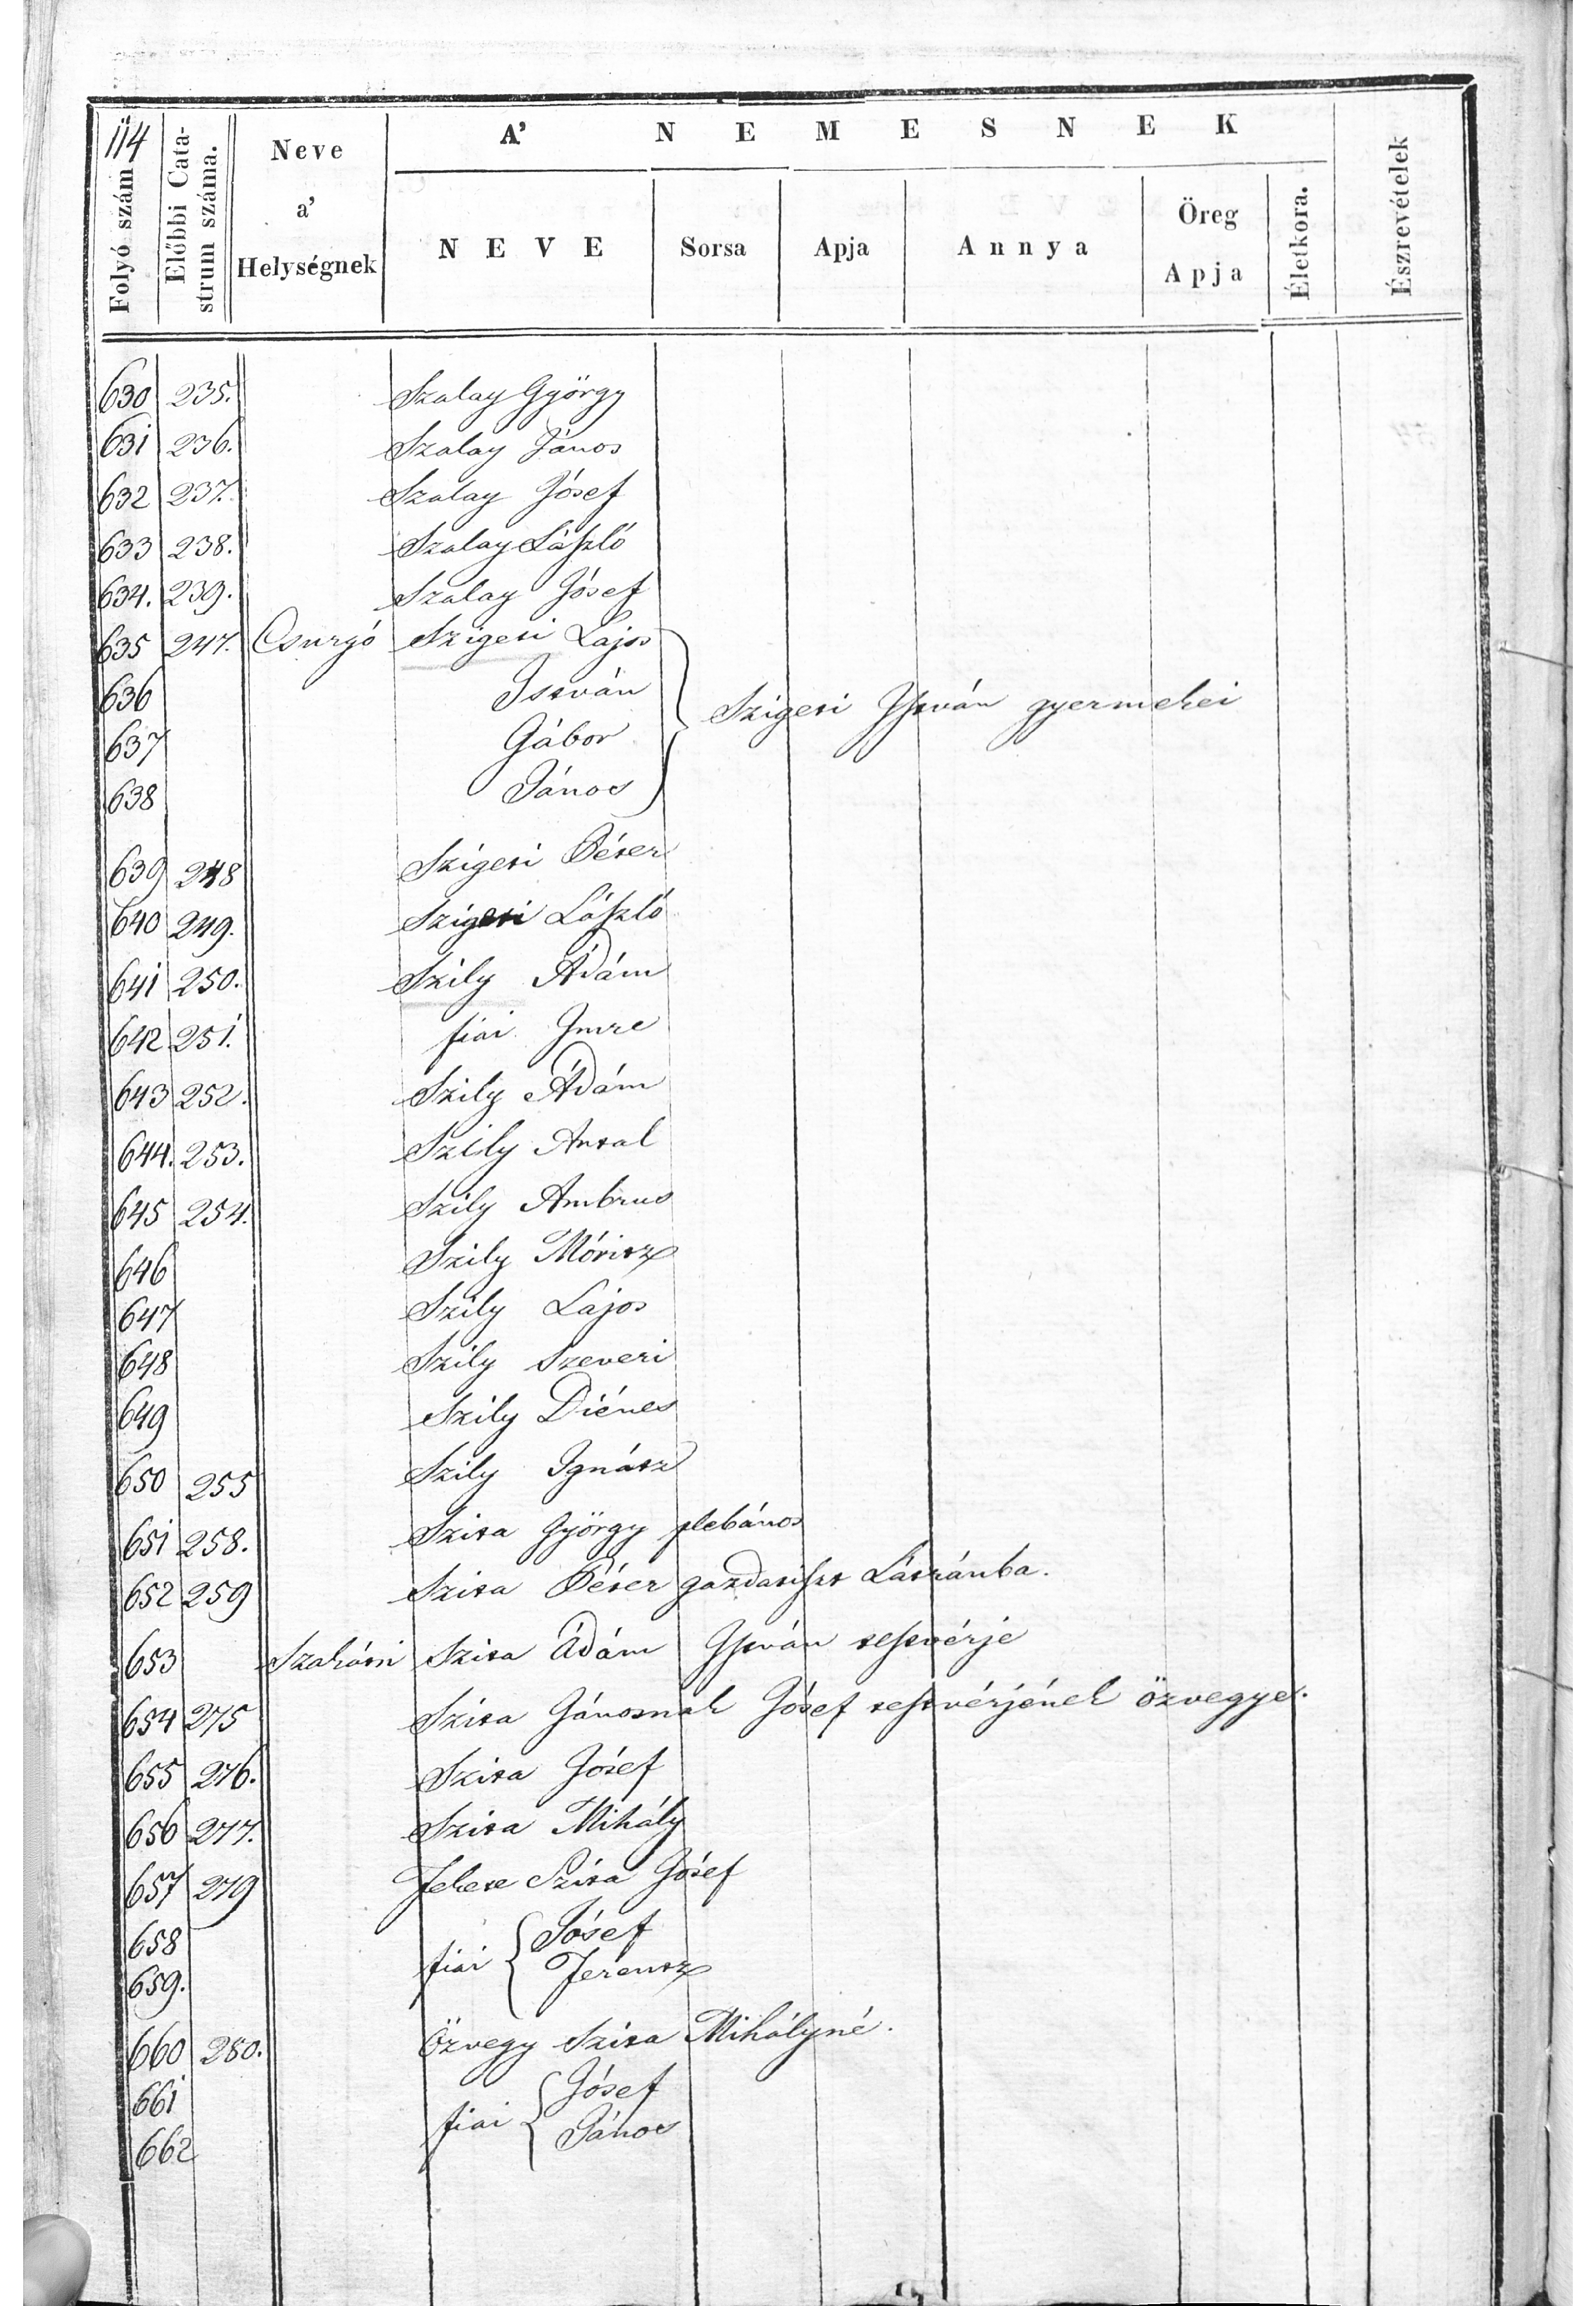 114
Folyó szám
Előbbi Cata-
strum száma.
Neve
a'
Helységnek
A' NEMESNEK
NEVE
Sorsa
Apja
Annya
Öreg
Apja
Életkora.
Észrevételek
630 235. Szalay György
631 236. Szalay János
632 237. Szalay Jósef
633 238. Szalay László
634. 239. Szalay Jósef
635 247. Csurgó Szigeti Lajos
636 István
Szigeti István gyermekei
637 Gábor
638 János
639 248 Szigeti Péter
640 249. Szigeti László
641 250. Szily Ádám
642 251. fiai Imre
643 252. Szily Ádám
644. 253. Szily Antal
645 254. Szily Ambrus
646 Szily Móritz
647 Szily Lajos
648 Szily Szeveri
649 Szily Diénes
650 255 Szily Ignátz
651 258. Szita György plebános
652 259 Szita Péter gazdatiszt Látránba.
653 Szakátsi Szita Ádám István testvérje
654 275 Szita Jánosnak Jósef testvérjének özvegye.
655 276. Szita Jósef
656 277. Szita Mihály
657 279 Fekete Szita Jósef
658 fiai Jósef
659. Ferentz
660 280. Özvegy Szita Mihályné.
661 fiai Jósef
662 János